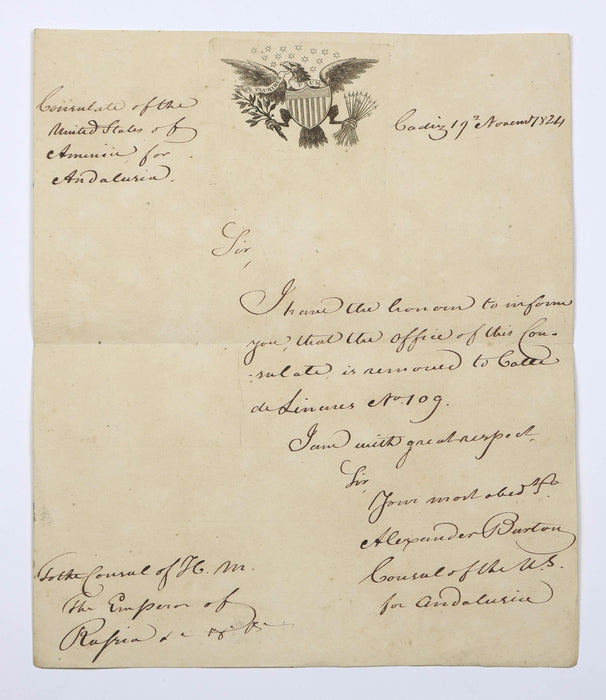 Consulate of the
United States of
America for
Andalusia.
Cadiz 19th Novemr. 1824
Sir,
I have the honour to inform
you, that the Office of this Con-
-sulate, is removed to Calle
de Linares No. 109.
I am with great respect
Sir,
Your most obed. St.
Alexander Burton
Consul of the U.S.
for Andalusia
To the Consul of H. M.
The Emperor of
Russia &c &c &c